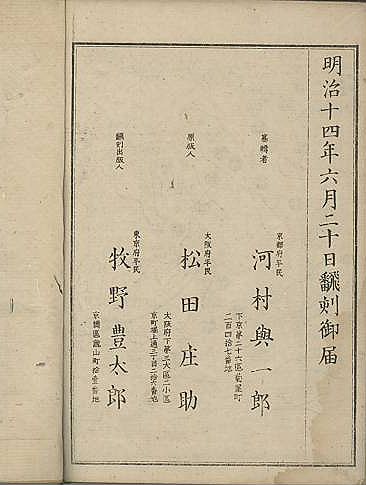 明治十四年六月二十日飜刻御届
纂輯者
京都府平民
河村與一郎
下京第二十二區菊屋町
二百四拾七番地
原版人
大阪府平民
松田庄助
大阪府下第二大區二小區
京町堀上通三丁目二拾六番地
飜刻出版人
東京府平民
牧野豊太郎
京橋區瀧山町拾壹番地